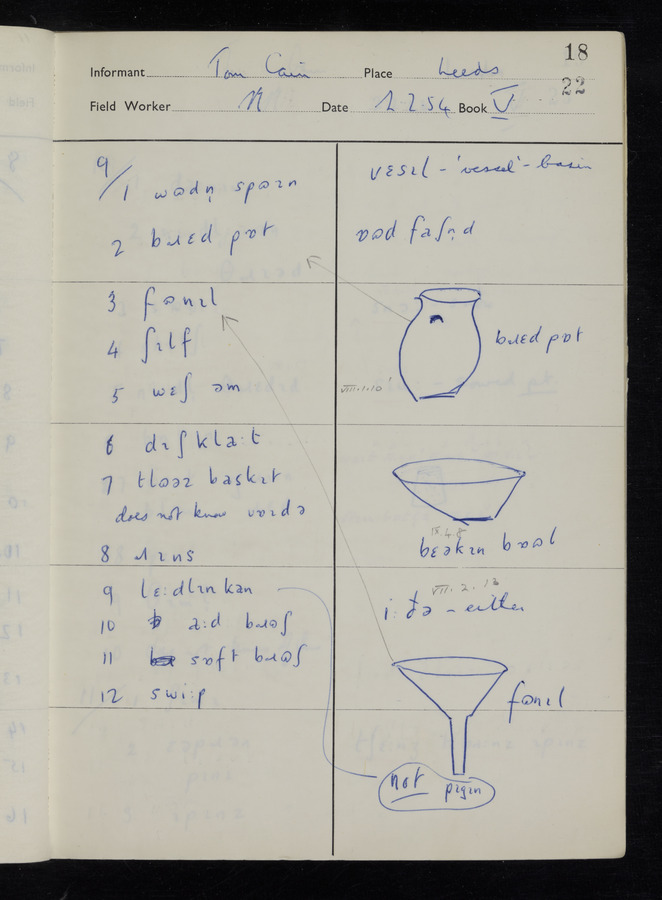 18
22
Informant Tom Cain Place Leeds
Field Worker Date 2.2.54 Book V
9/1 wʊdn̩ spʊɪn
2 bɹɛd pɒt
3 fʊnɪl
4 ʃɪlf
5 wɛʃ əm
6 dɪʃ klaːt
7 tlʊəz baskɪt
does not know
8 ɹɪns
9 lɛːdlɪn kan
10 aːd bɹʊʃ
11 sɒft bɹʊʃ
12 swiːp
vɛsɪl - 'vessel' - basin
bɹɛd pɒt
VIII.1.10
IX.4.8
bɛəkɪn bʊəl
VII.2.13
iːðə - either
fʊnɪl
not